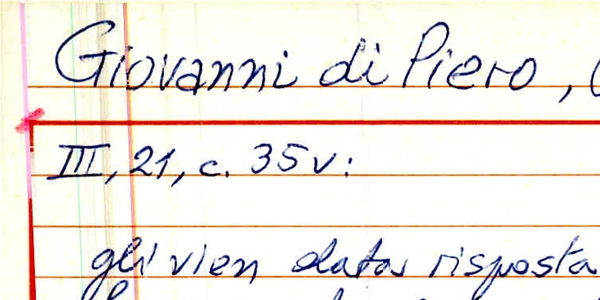 Giovanni di Piero, (
III, 21, c. 35v:
gli vien data risposta